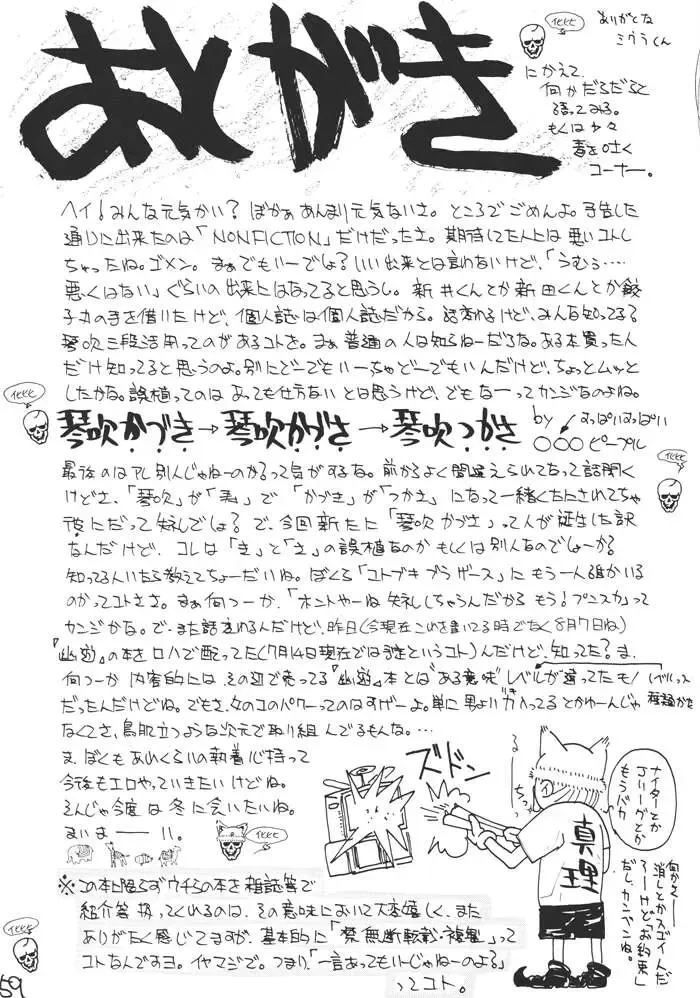 あとがき
ケケケ
ありがとな
ミウラくん
にかえて
何かだらだらと
語ってみる。
もしくは少々
毒を吐く
コーナー。
ヘイ!みんな元気かい?ぼかぁあんまり元気ないさ。ところでごめんよ。予告した
通りに出来たのは「NONFICTION」だけだったさ。期待してた人には悪いコトし
ちゃったね。ゴメン。まぁでもいーでしょ?いい出来とは言わないけど、「うむぅ‥‥
悪くはない」ぐらいの出来にはなってると思うし。新井くんとか新田くんとか餃
子丸の手を借りたけど、個人誌は個人誌だから。話変わるけど、みんな知ってる?
琴吹三段活用ってのがあるコトを。まぁ普通の人は知らねーだろな。ある本買った人
だけ知ってると思うのよ。別にどーでもいーっちゃどーでもいんだけど、ちょっとムッと
したかな。誤植ってのはあっても仕方ないとは思うけど、でもなーってカンジなのよね。
ケケケ
琴吹かづき→琴吹かづさ→琴吹つかさ
by すっぱいすっぱい
○○○ピープル
ケケケ
最後のはアレ別人じゃねーのか?って気がするな。前からよく間違えられてたって話聞く
けどさ、「琴吹」が「 」で「かづき」が「つかさ」になって一緒くたにされてちゃ
彼にだって失礼でしょ?で、今回新たに「琴吹かづさ」って人が誕生した訳
なんだけど、コレは「き」と「さ」の誤植なのかもしくは別人なのでしょーか?
知ってる人いたら教えてちょーだいね。ぼくら「コトブキブラザース」にもう一人誰かいる
のかってコトさ。まぁ何つーか、「ホントやーね失礼しちゃうんだからもう!プンスカ」って
カンジかな。で、また話変わるんだけど、昨日(今現在これを書いてる時でなく8月7日ね)
『幽遊』の本をロハで配ってた(7月14日現在では予定というコト)んだけど、知ってた?ま、
何つーか内容的にはその辺で売ってる『幽遊』本とは"ある意味"レベルが違ってたモノ
レベルっつー
種類かな
だったんだけどね。でもさ、女のコのパワーってのはすげーよ。単に男より力入ってるとかゆーんじゃ
なくてさ、鳥肌立つような次元で取り組んでるもんな、…
ま、ぼくもあれくらいの執着心持って
今後もエロやっていきたいけどね。
そんじゃ今度は冬に会いたいね。
まいまーーい。
ケケケ
ズドン
る
ちっ
真理
ナイターとか
Jリーグとか
もうバカ
何かさー
消しとかスゴイんだ
ろーけど「お約束」
だし、カンベンね。
※この本に限らずウチらの本を雑誌等で
紹介等扱ってくれるのは、その意味において大変嬉しく、また
ありがたく感じてますが、基本的に「禁無断転載・複製」って
コトなんですヨ。イヤマジで。つまり、「一言あってもいーじゃねーのよる?」
ってコト。
ケケケ
59